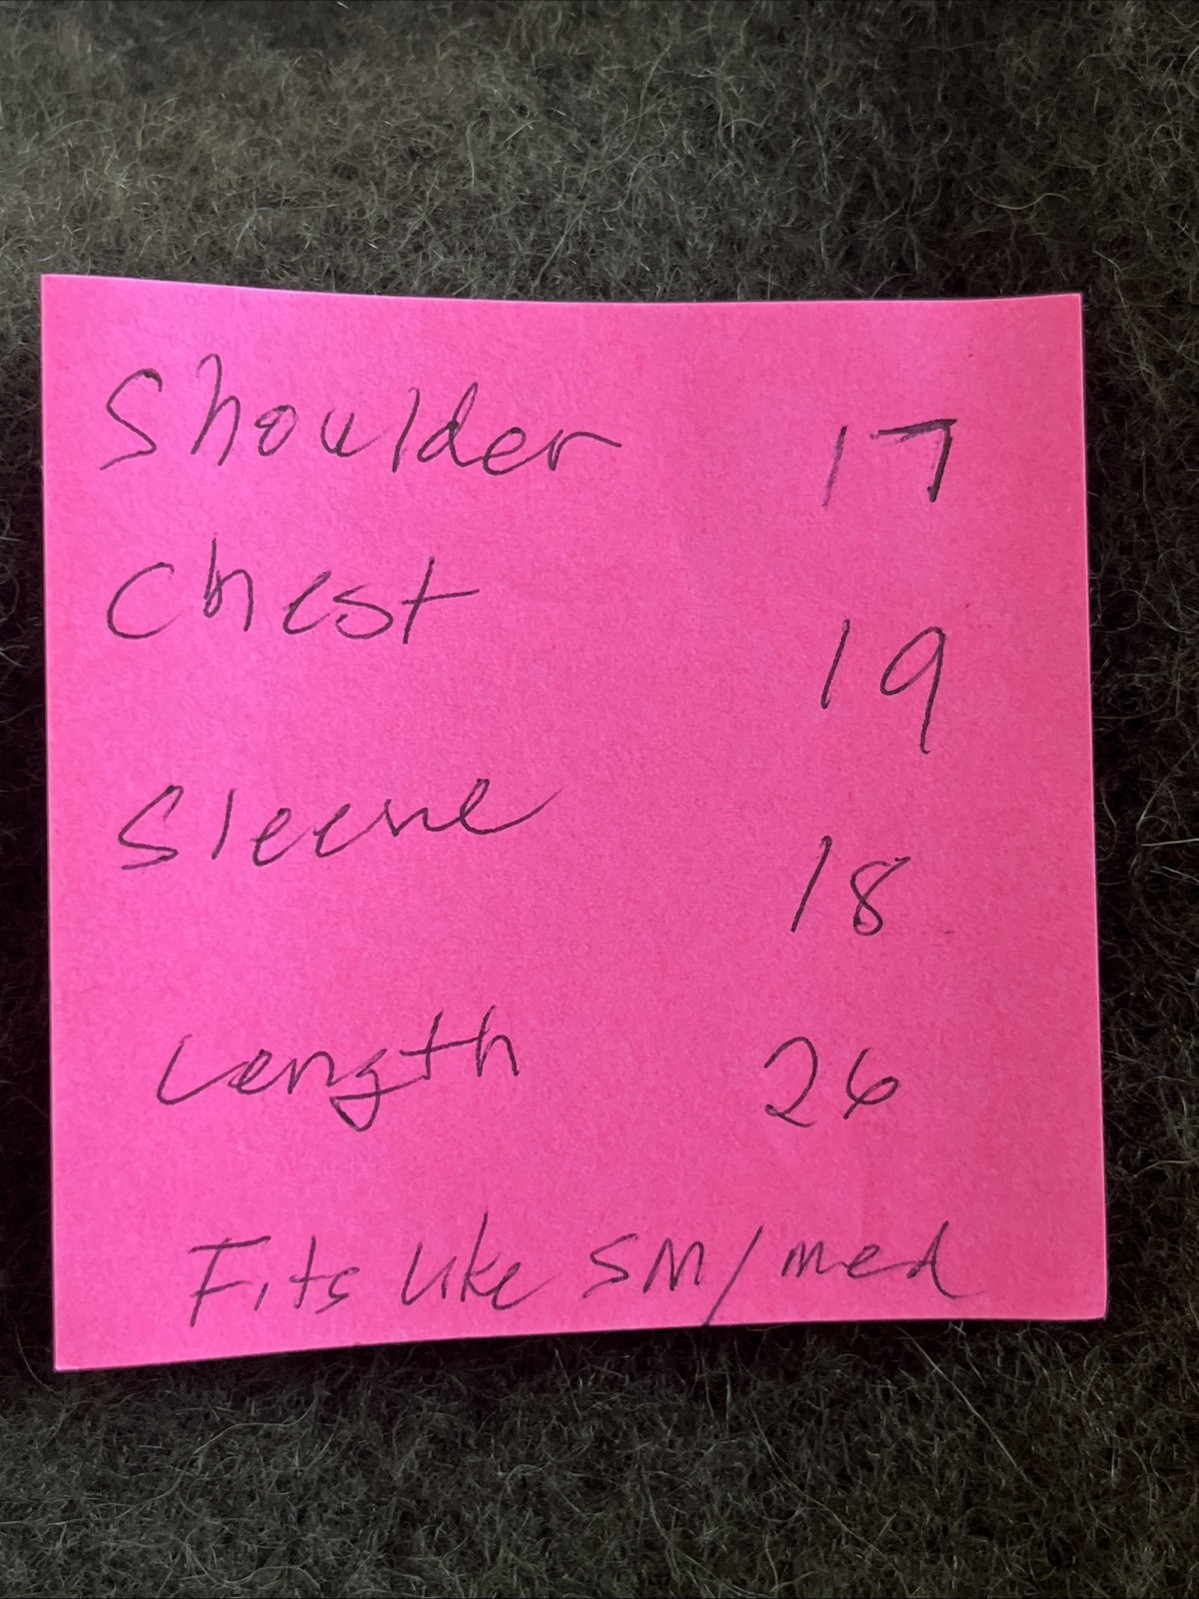 Shoulder 17
Chest 19
Sleeve 18
Length 26
Fits like SM/med